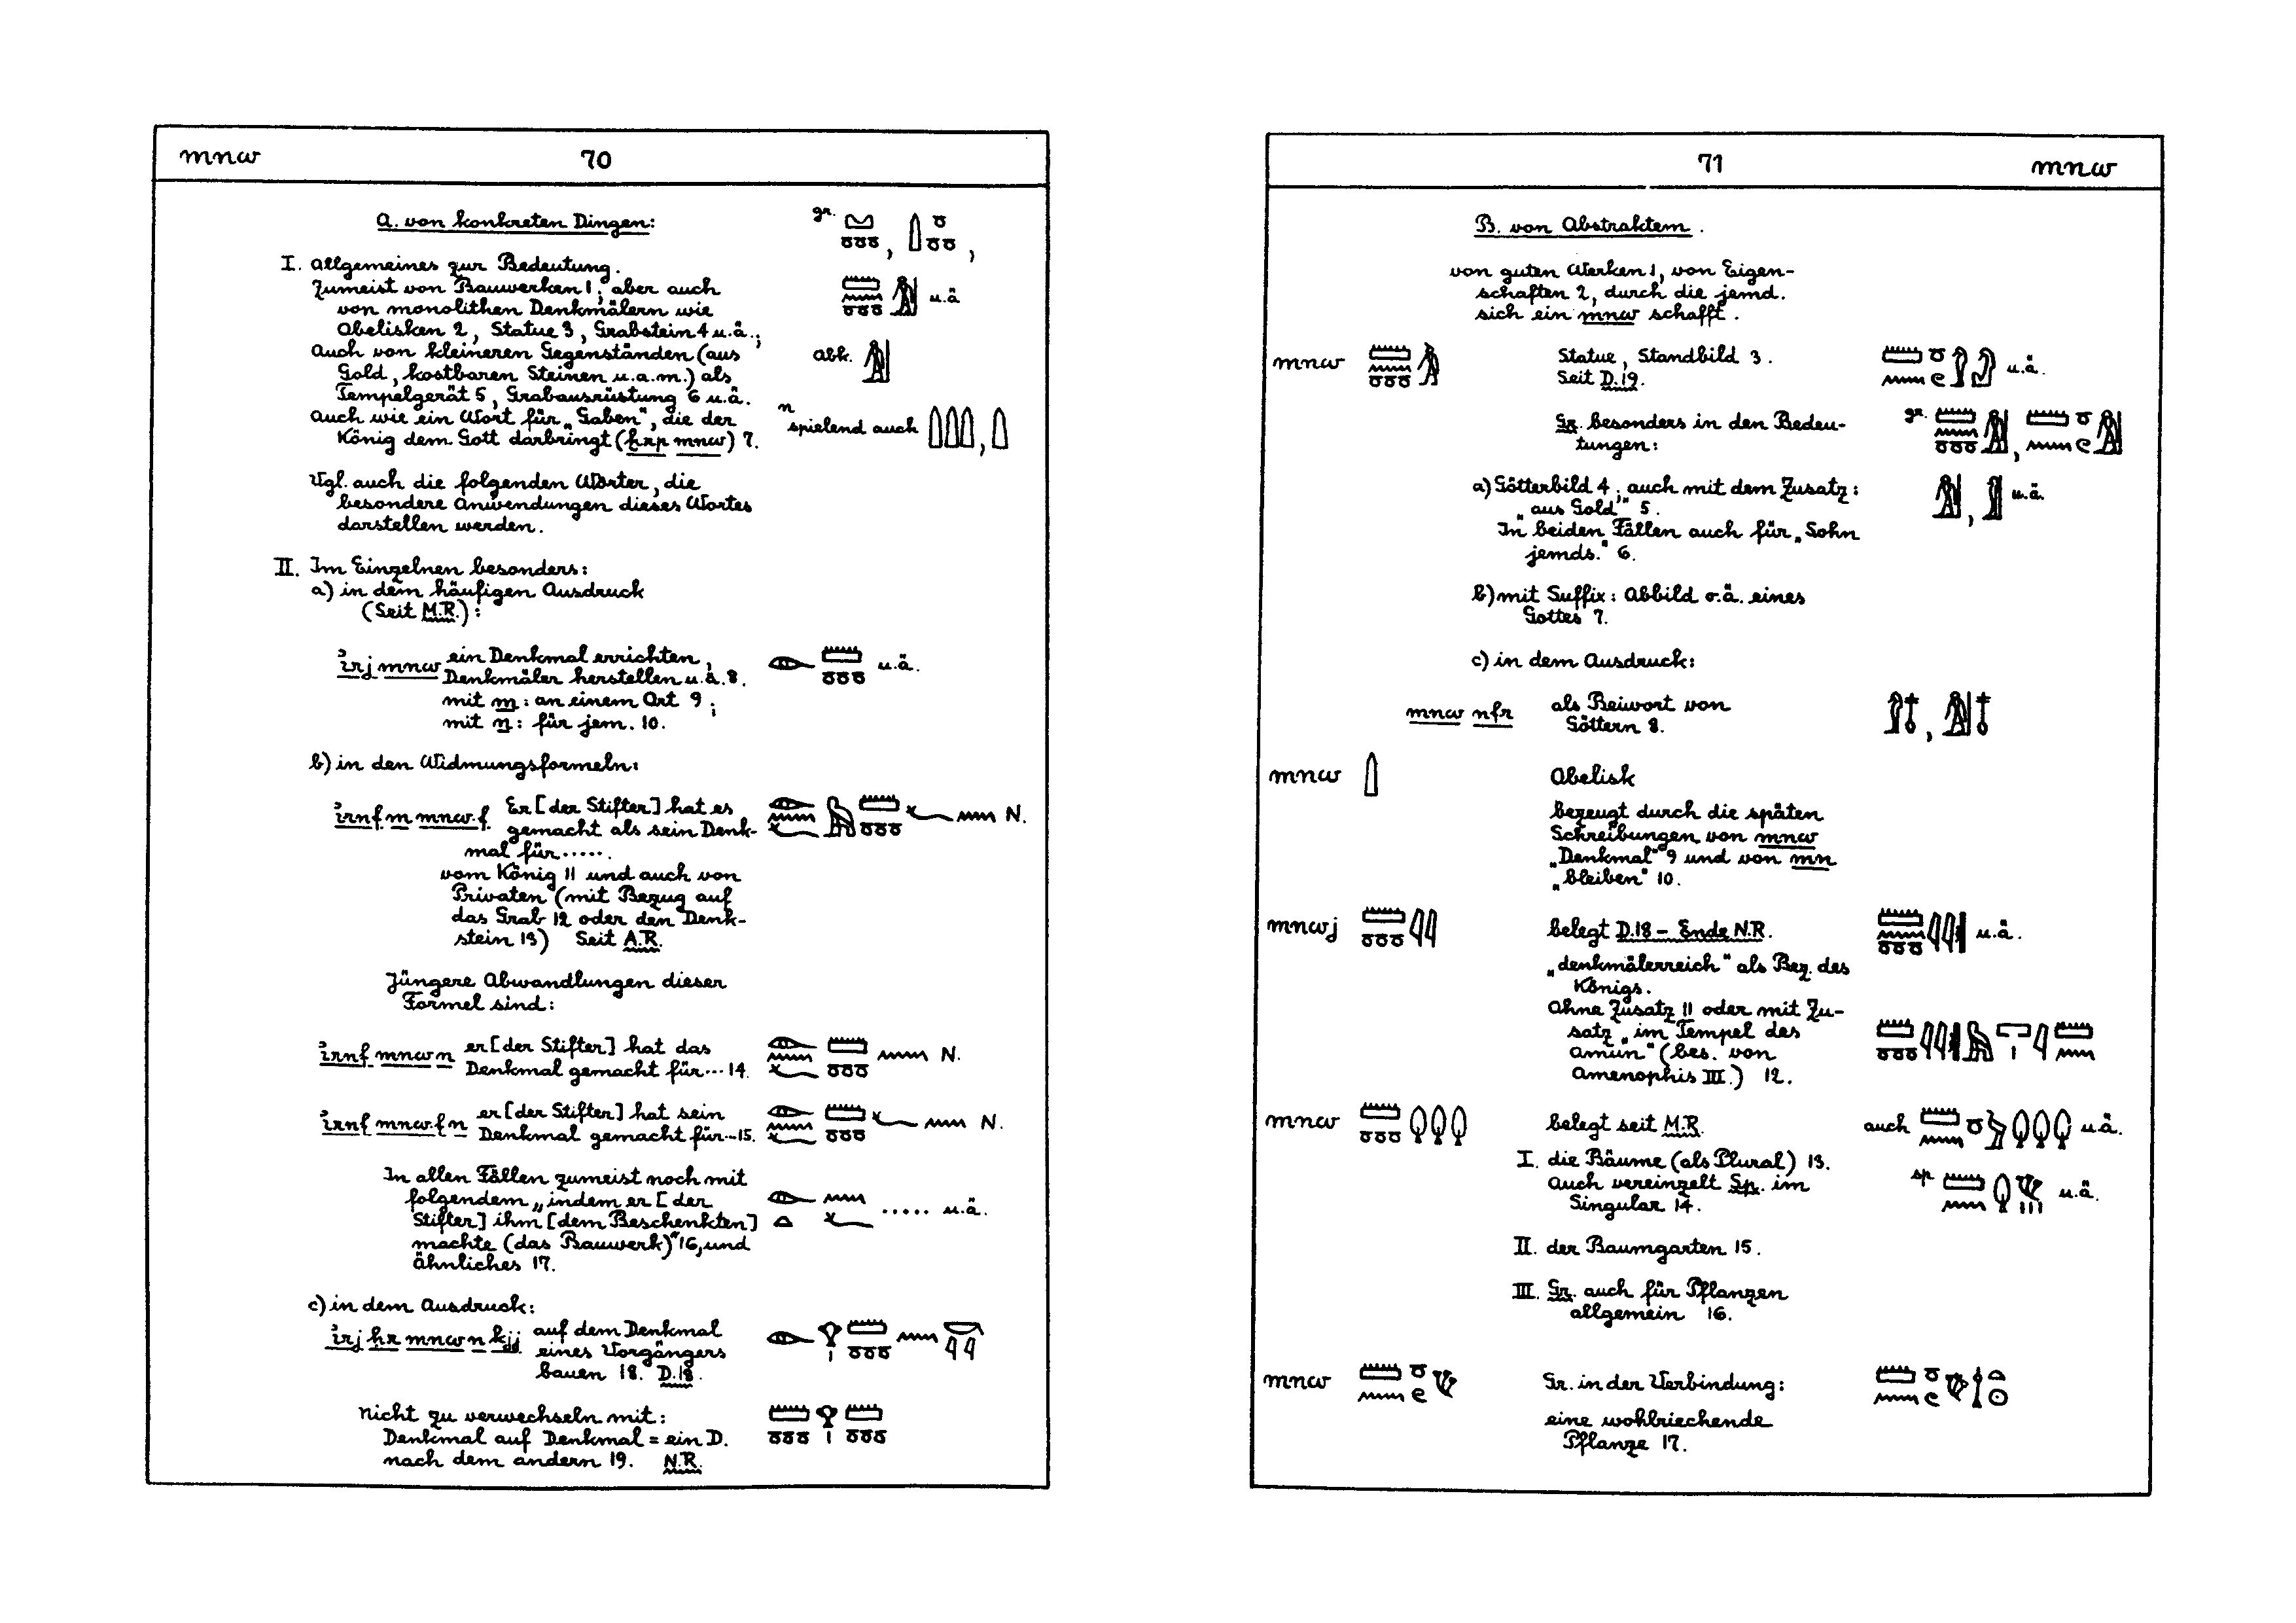 mnw 70
A. von konkreten Dingen:
gr.
I. Allgemeines zur Bedeutung.
Zumeist von Bauwerken 1; aber auch
von monolithen Denkmälern wie
Obelisken 2, Statue 3, Grabstein 4 u.ä.;
u.ä
auch von kleineren Gegenständen (aus
Gold, kostbaren Steinen u.a.m.) als
Tempelgerät 5, Grabausrüstung 6 u.ä.
abk.
auch wie ein Wort für „Gaben", die der
König dem Gott darbringt (ḫrp mnw) 7.
n
spielend auch
Vgl. auch die folgenden Wörter, die
besondere Anwendungen dieses Wortes
darstellen werden.
II. Im Einzelnen besonders:
a) in dem häufigen Ausdruck
(Seit M.R.):
irj mnw ein Denkmal errichten,
Denkmäler herstellen u.ä. 8.
u.ä.
mit m: an einem Ort 9;
mit n: für jem. 10.
b) in den Widmungsformeln:
irnf m mnw.f Er [der Stifter] hat es
gemacht als sein Denk-
N.
mal für .....
vom König 11 und auch von
Privaten (mit Bezug auf
das Grab 12 oder den Denk-
stein 13) Seit A.R.
Jüngere Abwandlungen dieser
Formel sind:
irnf mnw n er [der Stifter] hat das
Denkmal gemacht für ... 14.
N.
irnf mnw.f n er [der Stifter] hat sein
Denkmal gemacht für ... 15.
N.
In allen Fällen zumeist noch mit
folgendem „indem er [der
Stifter] ihm [dem Beschenkten]
machte (das Bauwerk)" 16, und
ähnliches 17.
..... u.ä.
c) in dem Ausdruck:
irj ḥr mnw n kjj auf dem Denkmal
eines Vorgängers
bauen 18. D.18.
Nicht zu verwechseln mit:
Denkmal auf Denkmal = ein D.
nach dem andern 19. N.R.
71 mnw
B. von Abstraktem.
von guten Werken 1, von Eigen-
schaften 2, durch die jemd.
sich ein mnw schafft.
mnw Statue, Standbild 3.
Seit D.19.
u.ä.
Gr. besonders in den Bedeu-
tungen:
gr.
a) Götterbild 4; auch mit dem Zusatz:
„aus Gold" 5.
In beiden Fällen auch für „Sohn
jemds." 6.
u.ä.
b) mit Suffix: Abbild o.ä. eines
Gottes 7.
c) in dem Ausdruck:
mnw nfr als Beiwort von
Göttern 8.
mnw Obelisk
bezeugt durch die späten
Schreibungen von mnw
„Denkmal" 9 und von mn
„bleiben" 10.
mnwj belegt D.18 – Ende N.R. u.ä.
„denkmälerreich" als Bez. des
Königs.
Ohne Zusatz 11 oder mit Zu-
satz „im Tempel des
Amun" (bes. von
Amenophis III.) 12.
mnw belegt seit M.R. auch u.ä.
I. die Bäume (als Plural) 13.
auch vereinzelt Sp. im
Singular 14.
sp u.ä.
II. der Baumgarten 15.
III. Gr. auch für Pflanzen
allgemein 16.
mnw Gr. in der Verbindung:
eine wohlriechende
Pflanze 17.